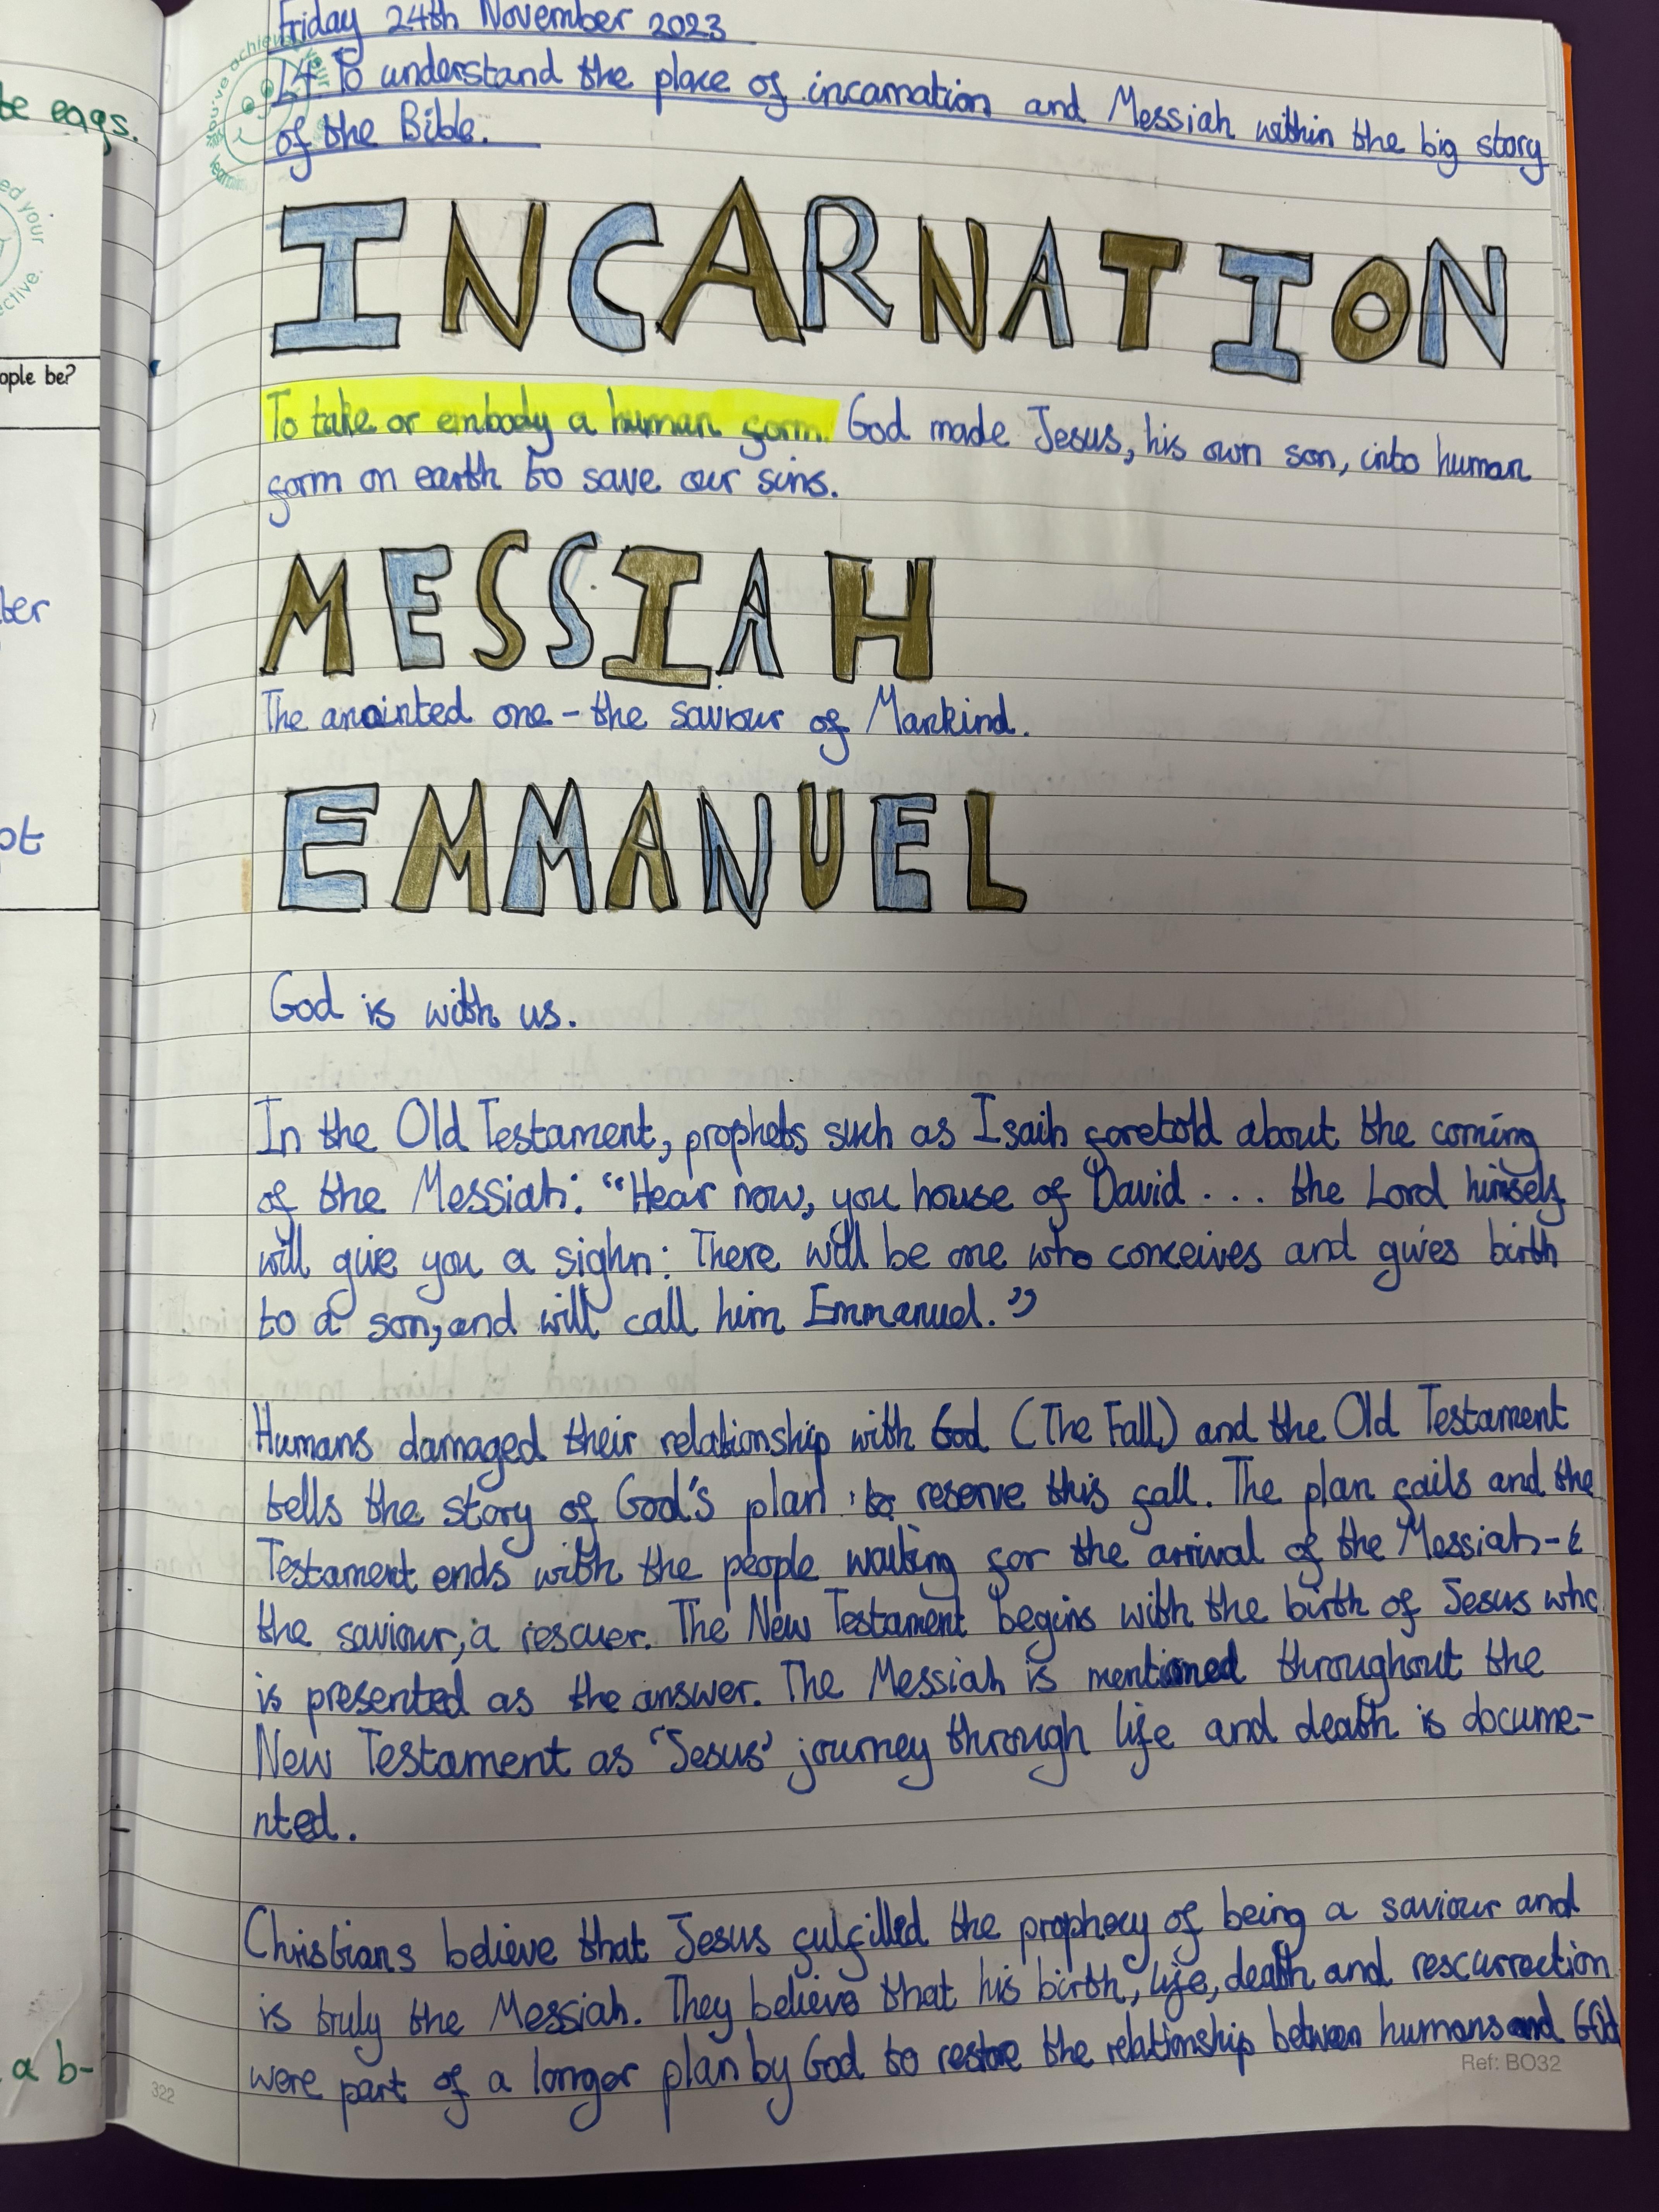 Friday 24th November 2023
LF To understand the place of incarnation and Messiah within the big story
of the Bible.
INCARNATION
To take or embody a human form. God made Jesus, his own son, into human
form on earth to save our sins.
MESSIAH
The anointed one - the saviour of Mankind.
EMMANUEL
God is with us.
In the Old Testament, prophets such as Isaih foretold about the coming
of the Messiah: "Hear now, you house of David . . . the Lord himself
will give you a sighn: There will be one who conceives and gives birth
to a son, and will call him Emmanuel."
Humans damaged their relationship with God (The Fall) and the Old Testament
tells the story of God's plan to reserve this fall. The plan fails and the
Testament ends with the people waiting for the arrival of the Messiah -
the saviour, a rescuer. The New Testament begins with the birth of Jesus who
is presented as the answer. The Messiah is mentioned throughout the
New Testament as 'Jesus' journey through life and death is docume-
nted.
Christians believe that Jesus fulfilled the prophecy of being a saviour and
is truly the Messiah. They believe that his birth, life, death and rescurrection
were part of a longer plan by God to restore the relationship between humans and God
Ref: BO32
322
be eggs.
ed your
ective.
ople be?
ter
ot
a b-